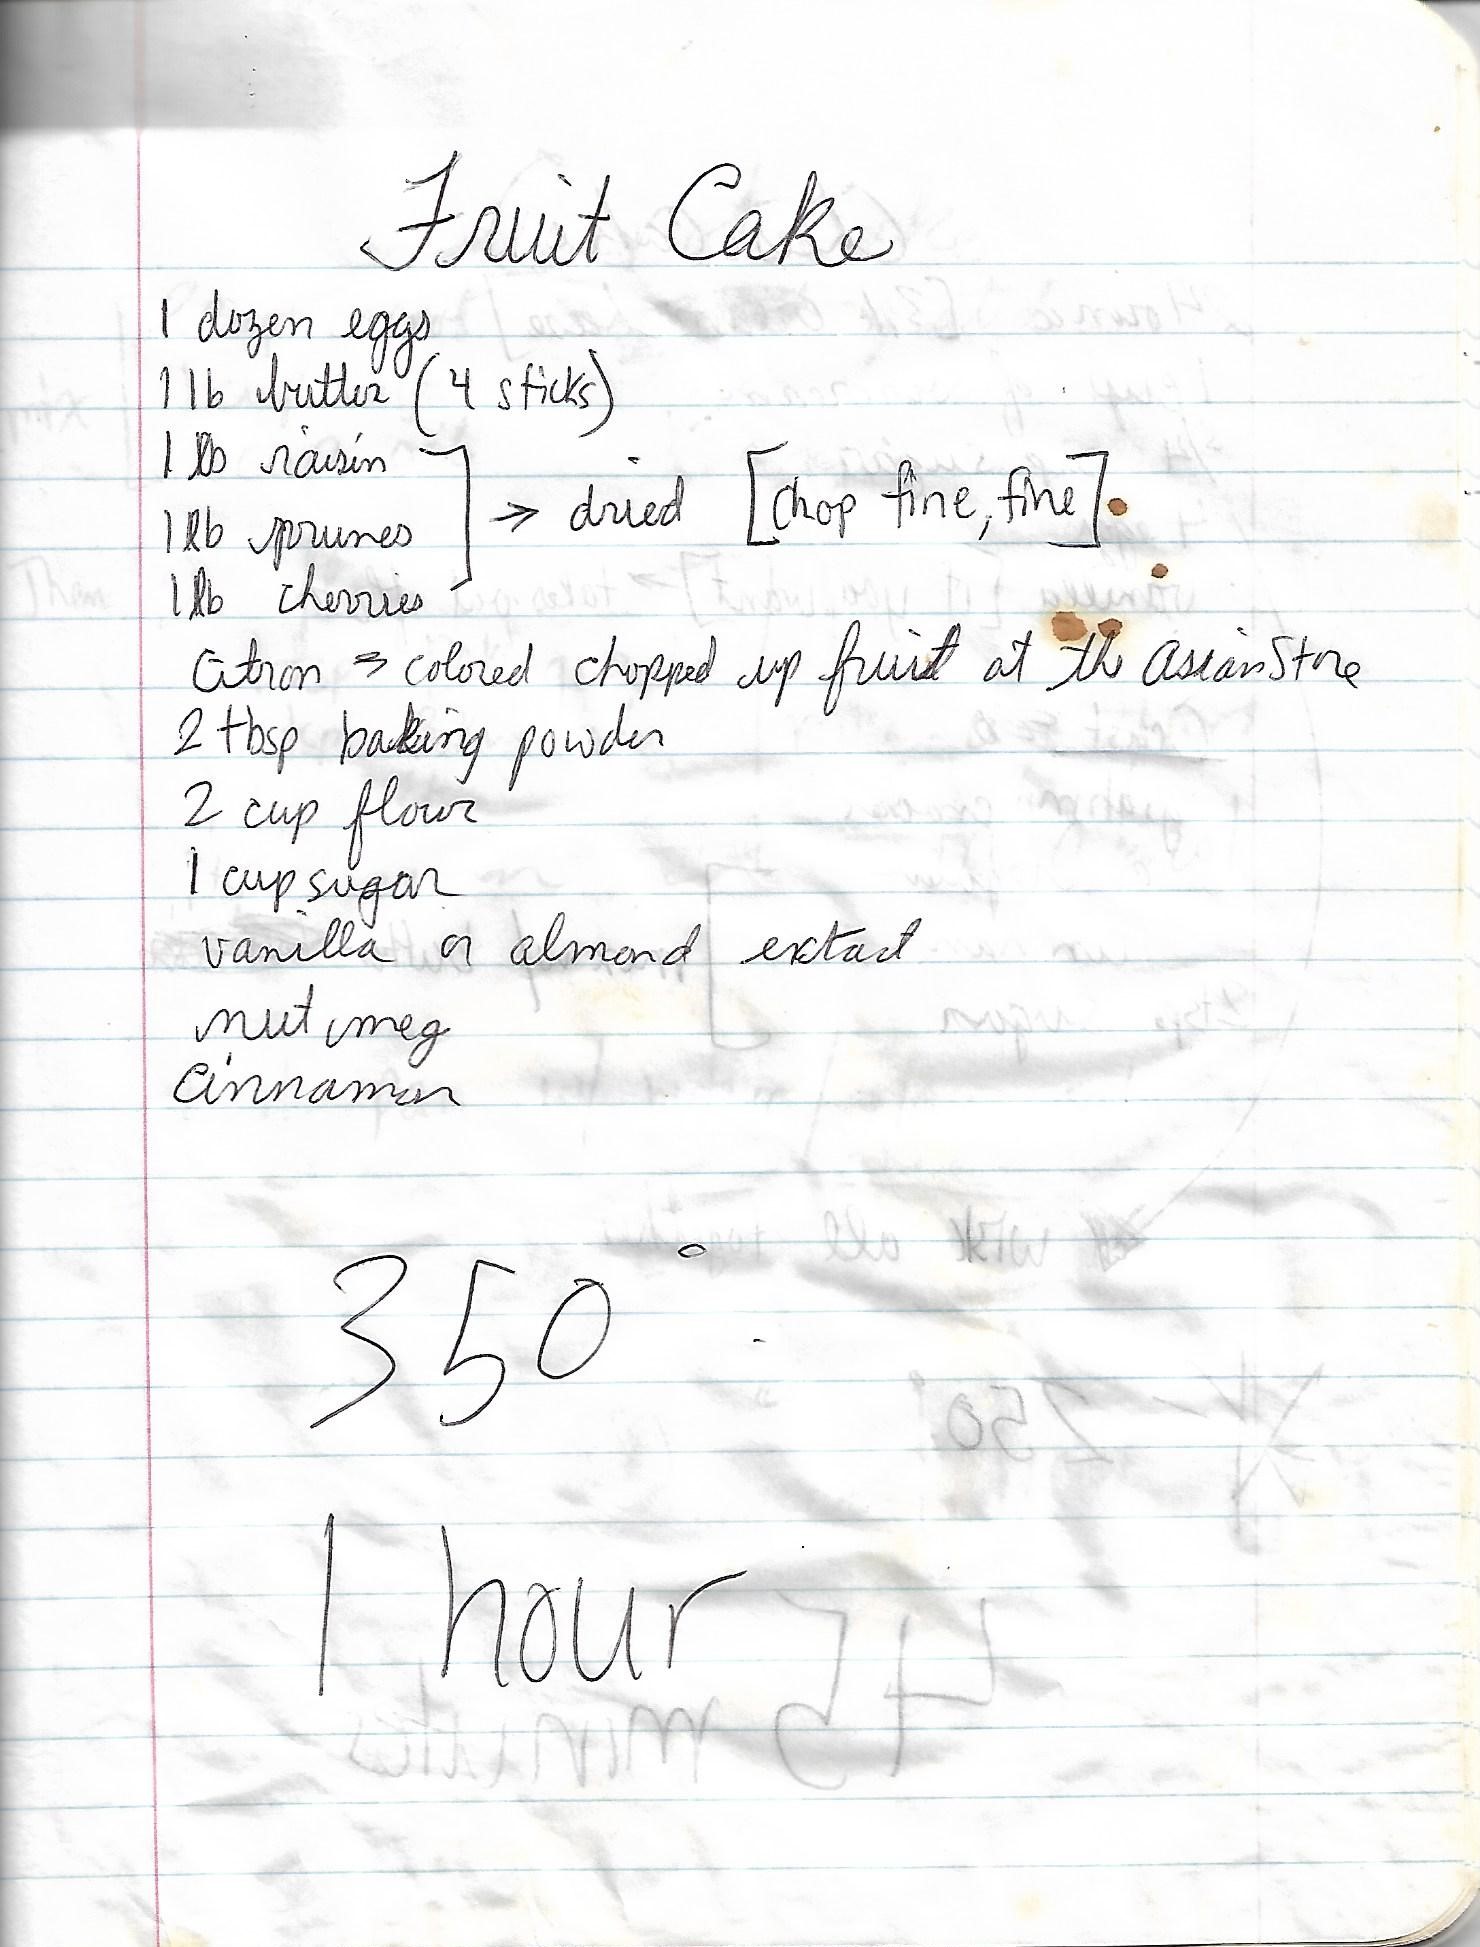 Fruit Cake
1 dozen eggs
1 lb butter (4 sticks)
1 lb raisin
1 lb prunes → dried [chop fine, fine].
1 lb cherries
Citron ⇒ colored chopped up fruit at the asian Store
2 tbsp baking powder
2 cup flour
1 cup sugar
vanilla or almond extact
nutmeg
cinnamon
350°
1 hour